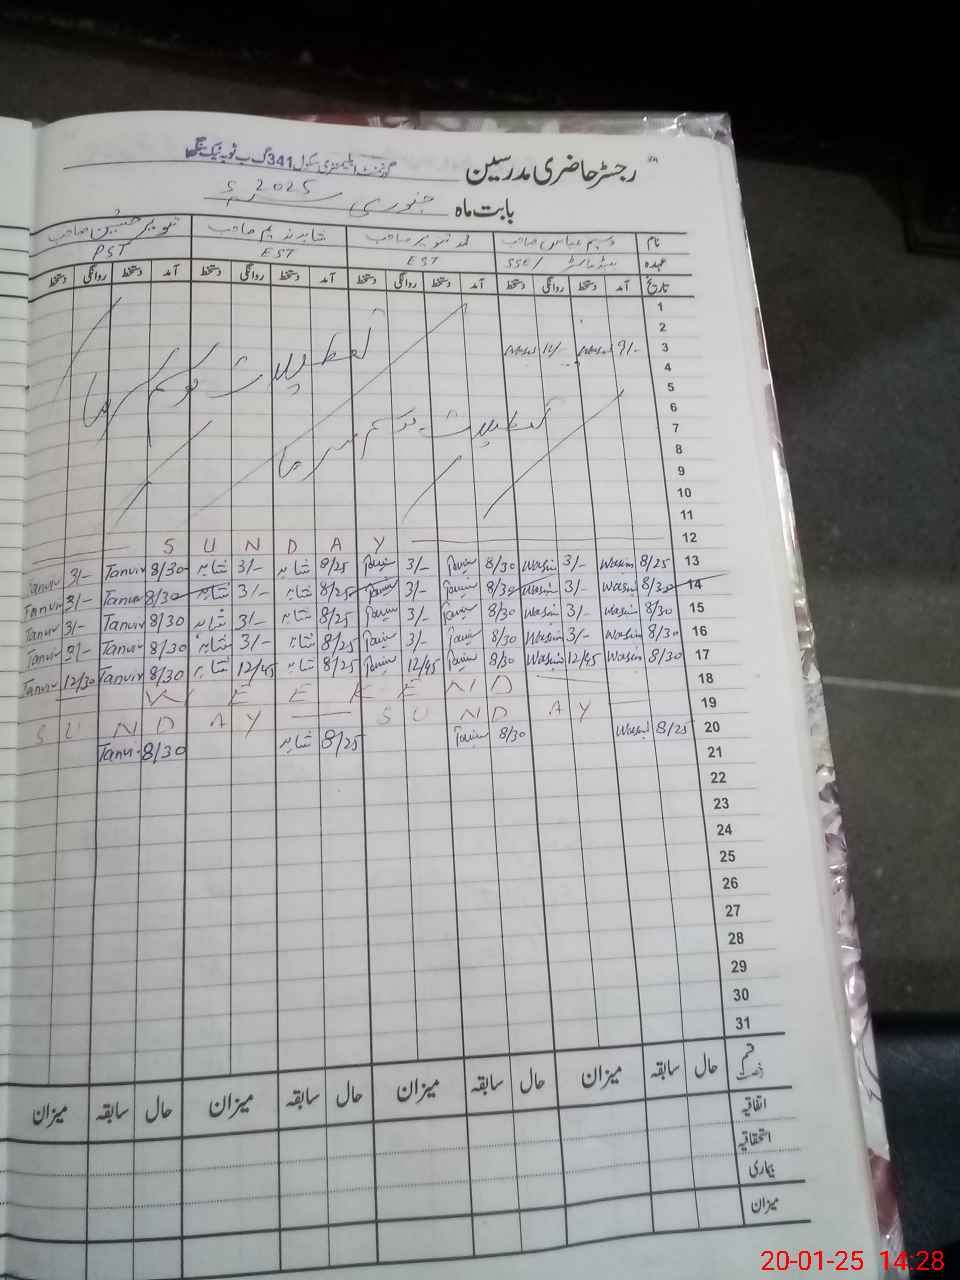 رجسٹر حاضری مدرسین گورنمنٹ ایلیمنٹری سکول 341 گ ب ٹوبہ ٹیک سنگھ
بابت ماہ جنوری 2025ء
نام وسیم عباس صاحب محمد تنویر صاحب شاہد ندیم صاحب تنویر حسین صاحب
عہدہ ہیڈ ماسٹر /SSE EST EST PST
تاریخ آمد دستخط روانگی دستخط آمد دستخط روانگی دستخط آمد دستخط روانگی دستخط آمد دستخط روانگی دستخط
1
2
3 9/- Wasim 11/- Wasim
تعطیلات موسم سرما
4
5
6
تعطیلات موسم سرما
7
8
9
10
11
SUNDAY 12
Tanvir 3/- Tanvir 8/30 شاہد 3/- شاہد 8/25 3/- 8/30 Wasim 3/- Wasim 8/25 13
Tanvir 3/- Tanvir 8/30 شاہد 3/- شاہد 8/25 3/- 8/30 Wasim 3/- Wasim 8/30 14
Tanvir 3/- Tanvir 8/30 شاہد 3/- شاہد 8/25 3/- 8/30 Wasim 3/- Wasim 8/30 15
Tanvir 3/- Tanvir 8/30 شاہد 3/- شاہد 8/25 3/- 8/30 Wasim 3/- Wasim 8/30 16
Tanvir 12/30 Tanvir 8/30 شاہد 12/45 شاہد 8/25 12/45 8/30 Wasim 12/45 Wasim 8/30 17
WEEKEND 18
SUNDAY SUNDAY 19
Tanvir 8/30 شاہد 8/25 8/30 Wasim 8/25 20
21
22
23
24
25
26
27
28
29
30
31
قسم رخصت حال سابقہ میزان حال سابقہ میزان حال سابقہ میزان حال سابقہ میزان
اتفاقیہ
استحقاقیہ
بیماری
میزان
20-01-25 14:28